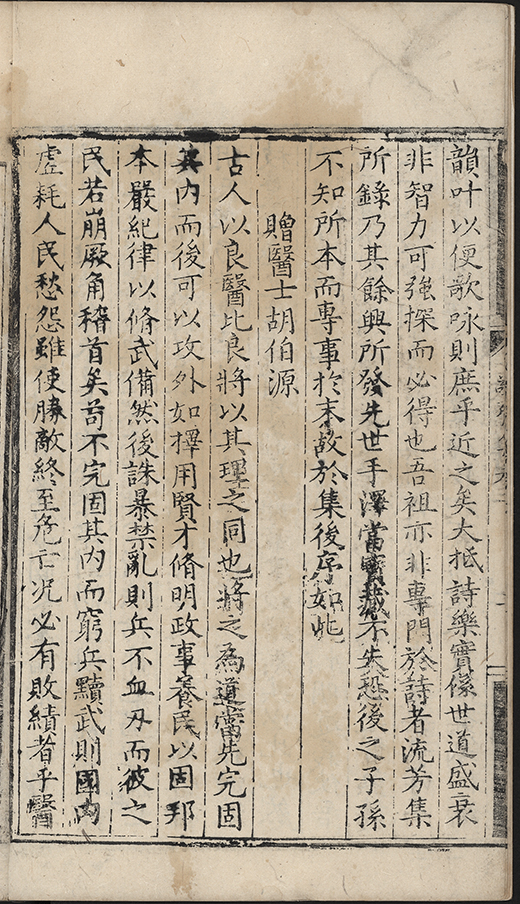 韻叶以便歌咏則庶乎近之矣大抵詩樂實係世道盛衰
非智力可強探而必得也吾祖亦非專門於詩者流芳集
所錄乃其餘興所發先世手澤當寶藏不失恐後之子孫
不知所本而專事於末故於集後序如此
贈醫士胡伯源
古人以良醫比良將以其理之同也將之為道當先完固
其內而後可以攻外如擇用賢才脩明政事養民以固邦
本嚴紀律以脩武備然後誅暴禁亂則兵不血刃而彼之
民若崩厥角稽首矣苟不完固其內而窮兵黷武則國內
虛耗人民愁怨雖使勝敵終至危亡况必有敗績者乎醫